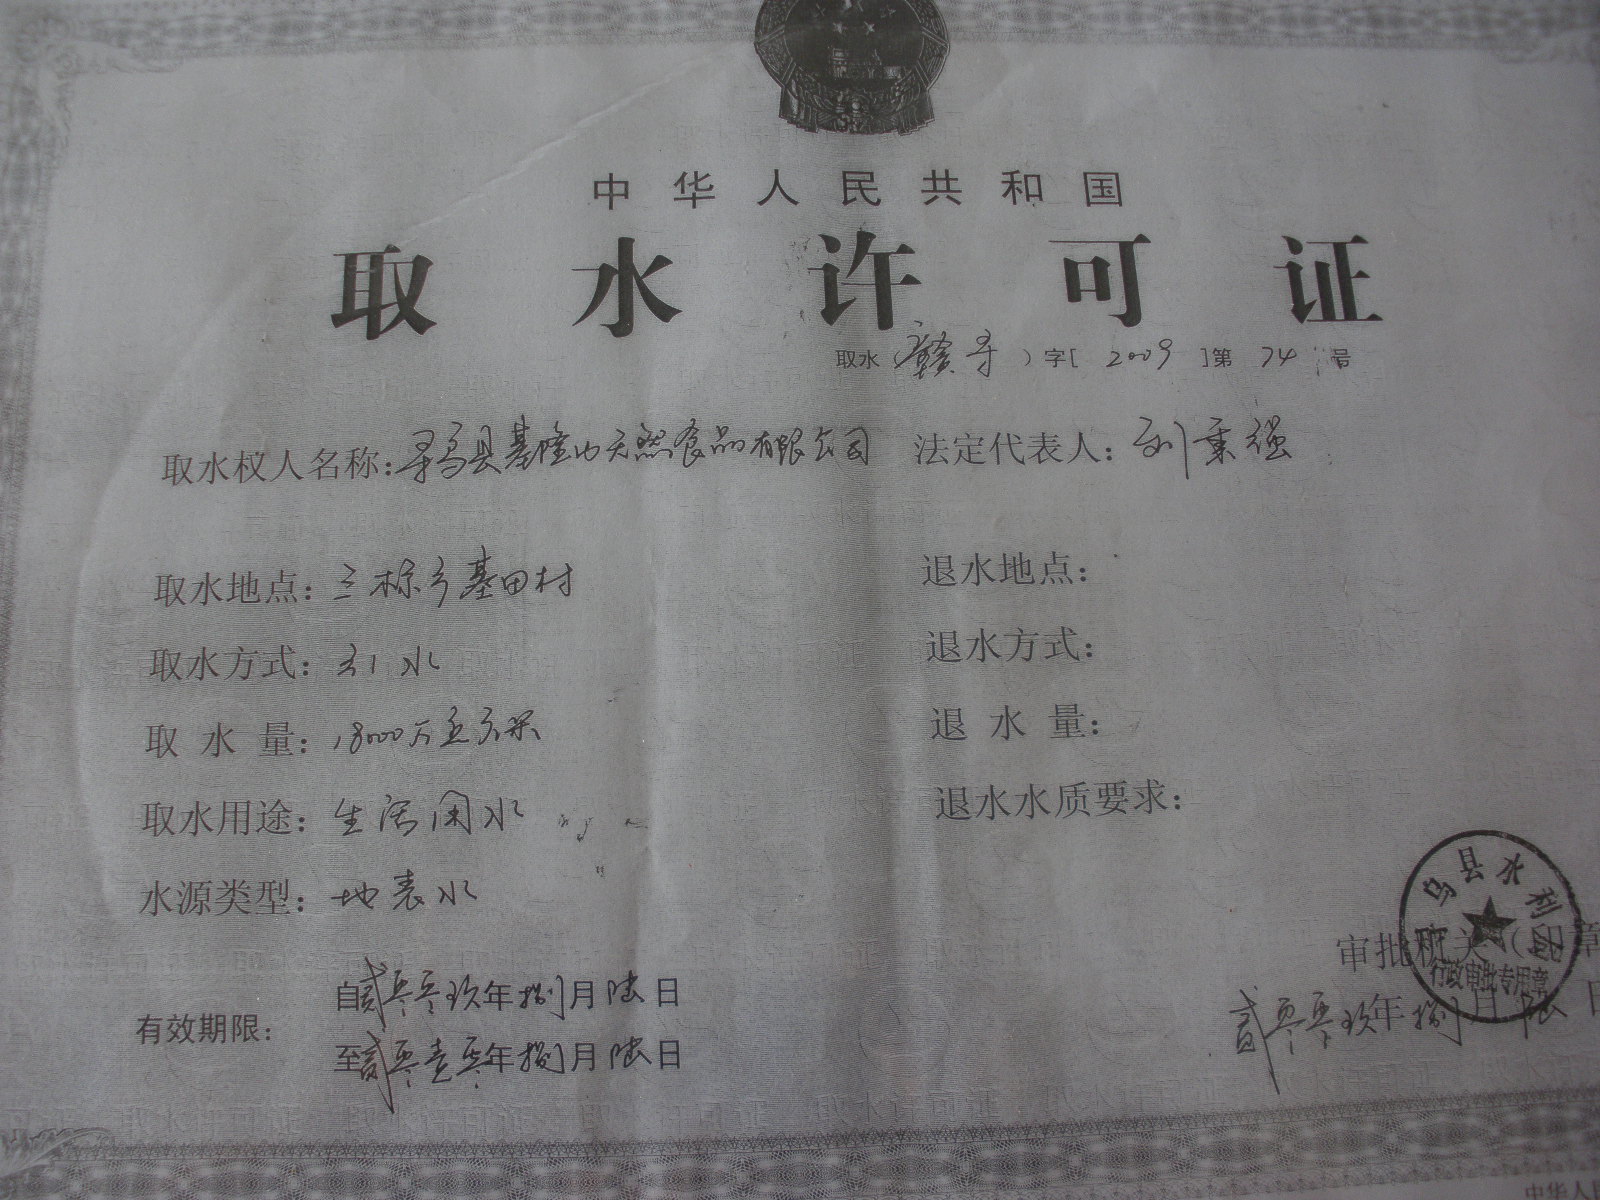 中华人民共和国
取水许可证
取水（赣寻）字[2009]第74号
取水权人名称：寻乌县基隆山天然食品有限公司 法定代表人：刘秉强
取水地点：三标乡基田村 退水地点：
取水方式：引水 退水方式：
取水量：18000万立方米 退水量：
取水用途：生活用水 退水水质要求：
水源类型：地表水
乌县水利局
审批机关（
章
行政审批专用章
有效期限：
自贰零零玖年捌月陆日
至贰零壹零年捌月陆日
贰零零玖年捌月陆日
中华人民